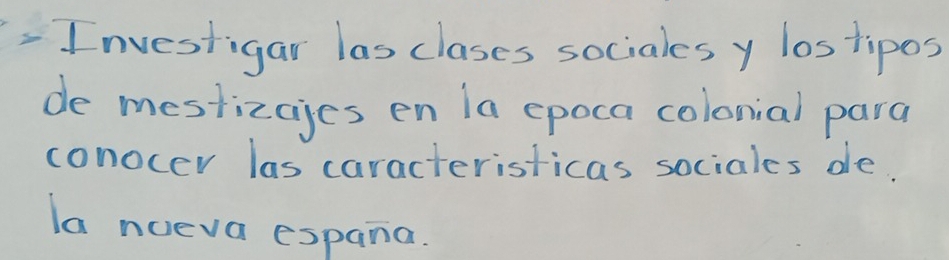 - Investigar las clases sociales y los tipos
de mestizajes en la epoca colonial para
conocer las caracteristicas sociales de.
la nueva españa.